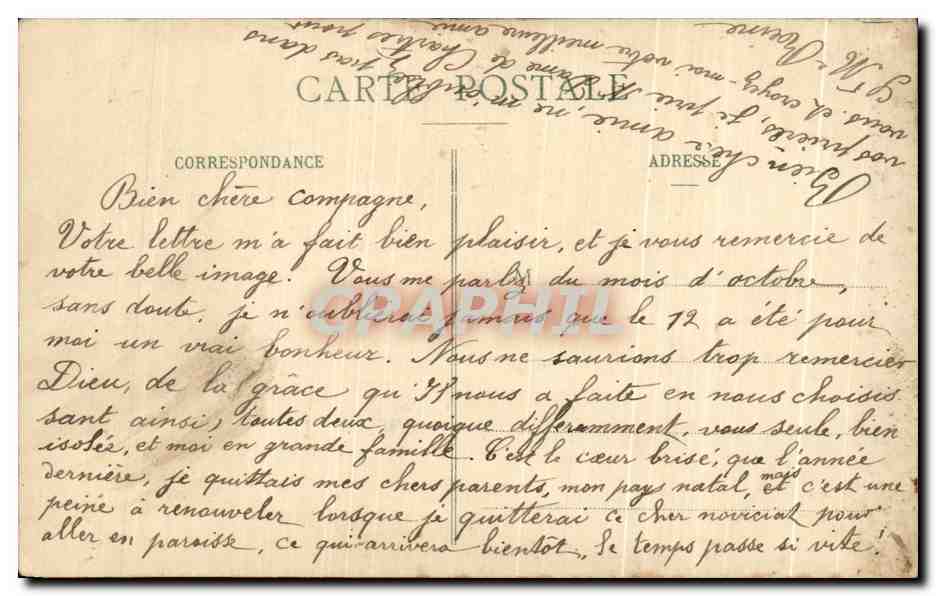 CARTE POSTALE
CORRESPONDANCE
ADRESSE
Bien chère compagne,
Votre lettre m'a fait bien plaisir, et je vous remercie de
votre belle image. Vous me parlez du mois d'octobre,
sans doute, je n'oublierai jamais que le 12 a été pour
moi un vrai bonheur. Nous ne saurions trop remercier
Dieu, de la grâce qu'Il nous a faite en nous choisis
sant ainsi, toutes deux, quoique differamment, vous seule, bien
isolée, et moi en grande famille. C'est le cœur brisé, que l'année
dernière, je quittais mes chers parents, mon pays natal, et mais c'est une
peine à renouveler lorsque je quitterai ce cher noviciat pour
aller en paroisse, ce qui arrivera bientôt, le temps passe si vite!
Bien chère amie, ne m'oubliez pas dans
vos prières, je prie N. Dame de Chartres pour
vous et croyez-moi votre meilleure amie
Sr M. Reine
CPAPHIL